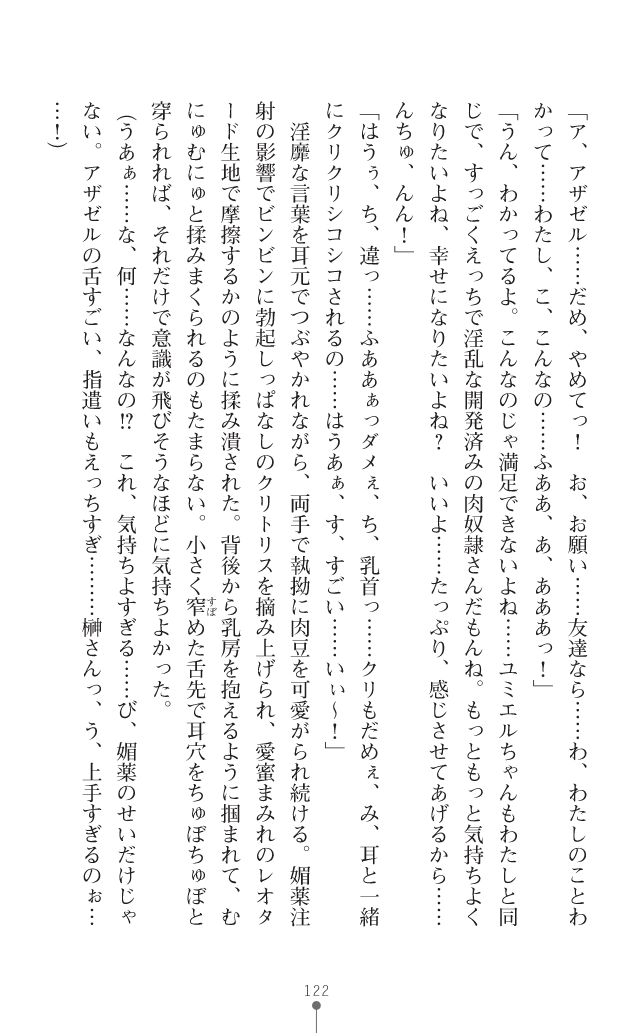 「ア、アザゼル……だめ、やめてっ！　お、お願い……友達なら……わ、わたしのことわ
かって……わたし、こ、こんなの……ふああ、あ、あああっ！」
「うん、わかってるよ。こんなのじゃ満足できないよね……ユミエルちゃんもわたしと同
じで、すっごくえっちで淫乱な開発済みの肉奴隷さんだもんね。もっともっと気持ちよく
なりたいよね、幸せになりたいよね？　いいよ……たっぷり、感じさせてあげるから……
んちゅ、んん！」
「はうぅ、ち、違っ……ふああぁっダメぇ、ち、乳首っ……クリもだめぇ、み、耳と一緒
にクリクリシコシコされるの……はうあぁ、す、すごい……いぃ～！」
　淫靡な言葉を耳元でつぶやかれながら、両手で執拗に肉豆を可愛がられ続ける。媚薬注
射の影響でビンビンに勃起しっぱなしのクリトリスを摘み上げられ、愛蜜まみれのレオタ
ード生地で摩擦するかのように揉み潰された。背後から乳房を抱えるように掴まれて、む
にゅむにゅと揉みまくられるのもたまらない。小さく窄めた舌先で耳穴をちゅぼちゅぼと
すぼ
穿られれば、それだけで意識が飛びそうなほどに気持ちよかった。
（うあぁ……な、何……なんなの!?　これ、気持ちよすぎる……び、媚薬のせいだけじゃ
ない。アザゼルの舌すごい、指遣いもえっちすぎ………榊さんっ、う、上手すぎるのぉ…
…！）
122